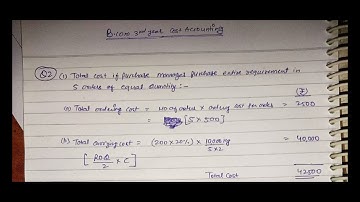 B.com 3rd year Cost Accounting
Q2) (i) Total cost if purchase manager purchase entire requirement in
5 orders of equal quantity :-
(₹)
(a) Total ordering cost = no of orders × ordering cost per order = 2500
= [5 × 500]
(b) Total carrying cost = (200×20%) × 10000 kg / 5×2 = 40,000
[ROQ / 2 × C]
Total Cost 42500